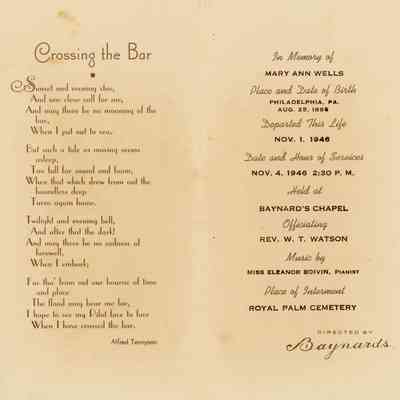 Crossing the Bar
Sunset and evening star,
And one clear call for me,
And may there be no moaning of the
bar,
When I put out to sea.
But such a tide as moving seems
asleep,
Too full for sound and foam,
When that which drew from out the
boundless deep
Turns again home.
Twilight and evening bell,
And after that the dark!
And may there be no sadness of
farewell,
When I embark;
For tho' from out our bourne of time
and place
The flood may bear me far,
I hope to see my Pilot face to face
When I have crossed the bar.
Alfred Tennyson
In Memory of
MARY ANN WELLS
Place and Date of Birth
PHILADELPHIA, PA.
AUG. 25,
Departed This Life
NOV. 1, 1946
Date and Hour of Services
NOV. 4, 1946 2:30 P. M.
Held at
BAYNARD'S CHAPEL
Officiating
REV. W. T. WATSON
Music by
MISS ELEANOR BOIVIN, PIANIST
Place of Interment
ROYAL PALM CEMETERY
DIRECTED BY
Baynards